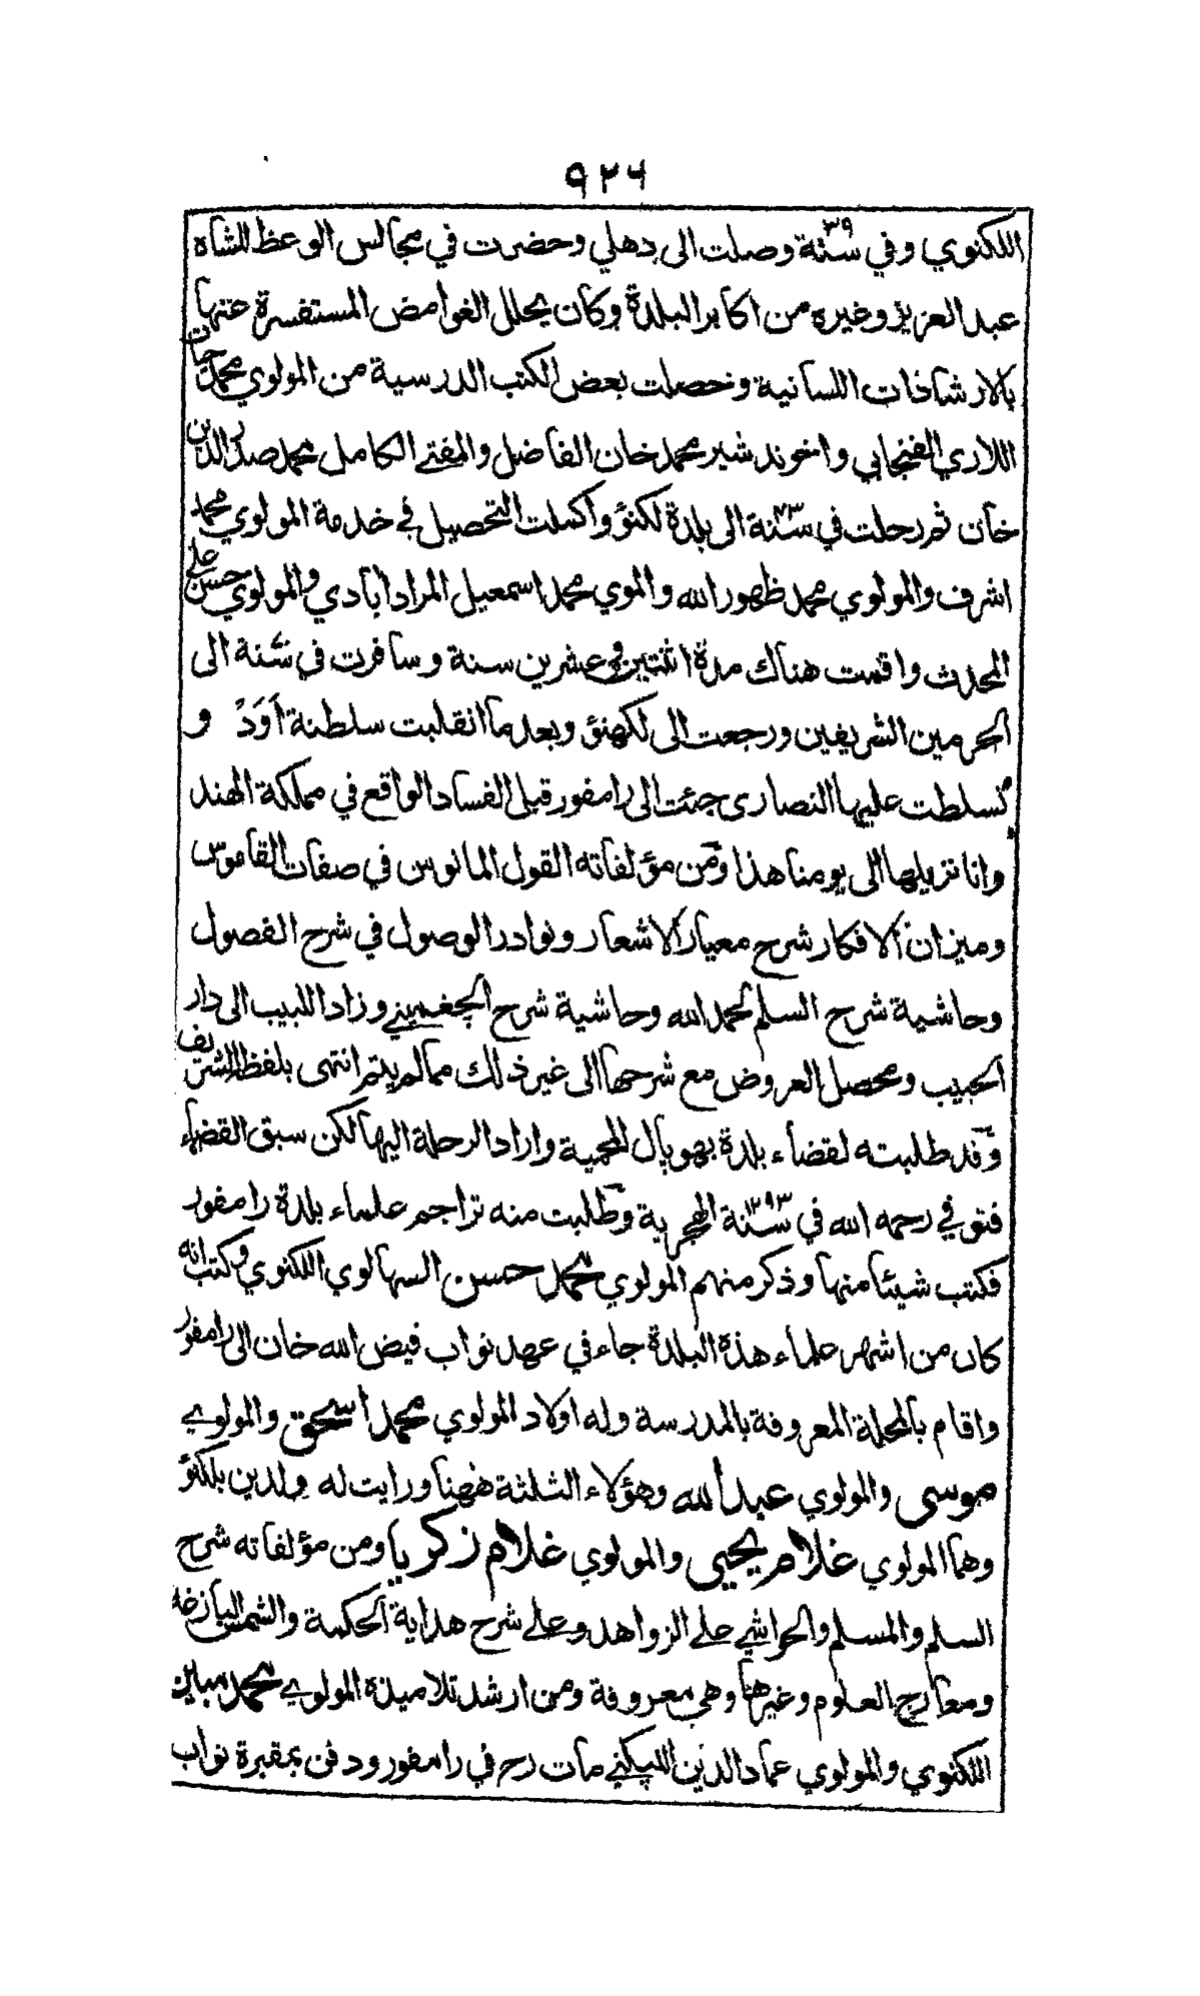 ٩٢٦
اللكنوي وفي سنة ٣٩ وصلت الى دهلي وحضرت في مجالس الوعظ للشاه
عبد العزيز وغيره من اكابر البلدة وكان يحلل الغوامض المستفسرة عنها
بالارشادات اللسانية وحصلت بعض الكتب الدرسية من المولوي محمد حيات
اللاري الفنجابي واخوند شير محمد خان الفاضل والمفتي الكامل محمد صدر الدين
خان ثم رحلت في سنة ٤٣ الى بلدة لكنؤ واكملت التحصيل في خدمة المولوي محمد
اشرف والمولوي محمد ظهور الله والموي محمد اسمعيل المرادآبادي والمولوي حسن علي
المحدث واقمت هناك مدة اثنتين وعشرين سنة وسافرت في سنة الى
الحرمين الشريفين ورجعت الى لكهنؤ وبعد ما انقلبت سلطنة اَوَدْ و
تسلطت عليها النصارى جئت الى رامفور قبل الفساد الواقع في مملكة الهند
وانا نزيلها الى يومنا هذا ومن مؤلفاته القول المانوس في صفات القاموس
وميزان الافكار شرح معيار الاشعار ونوادر الوصول في شرح الفصول
وحاشية شرح السلم لحمد الله وحاشية شرح الجغميني وزاد اللبيب الى دار
الحبيب ومحصل العروض مع شرحها الى غير ذلك مما لم يتم انتهى بلفظه الشريف
وقد طلبته لقضاء بلدة بهوپال المحمية واراد الرحلة اليها لكن سبق القضاء
فتوفي رحمه الله في سنة ١٢٩٣ الهجرية وطلبت منه تراجم علماء بلدة رامفور
فكتب شيئا منها وذكر منهم المولوي محمد حسن السهالوي اللكنوي وكتب انه
كان من اشهر علماء هذه البلدة جاء في عهد نواب فيض الله خان الى رامفور
واقام بالمحلة المعروفة بالمدرسة وله اولاد المولوي محمد اسحق والمولوي
موسى والمولوي عبد الله وهؤلاء الثلثة ههنا ورايت له ولدين بلكنؤ
وهما المولوي غلام يحيى والمولوي غلام زكريا ومن مؤلفاته شرح
السلم والمسلم والحواشي على الزواهد وعلى شرح هداية الحكمة والشمس البازغه
ومعارج العلوم وغيرها وهي معروفة ومن ارشد تلاميذه المولوي محمد مبين
اللكنوي والمولوي عماد الدين اللبكني مات رح في رامفور ودفن بمقبرة نواب